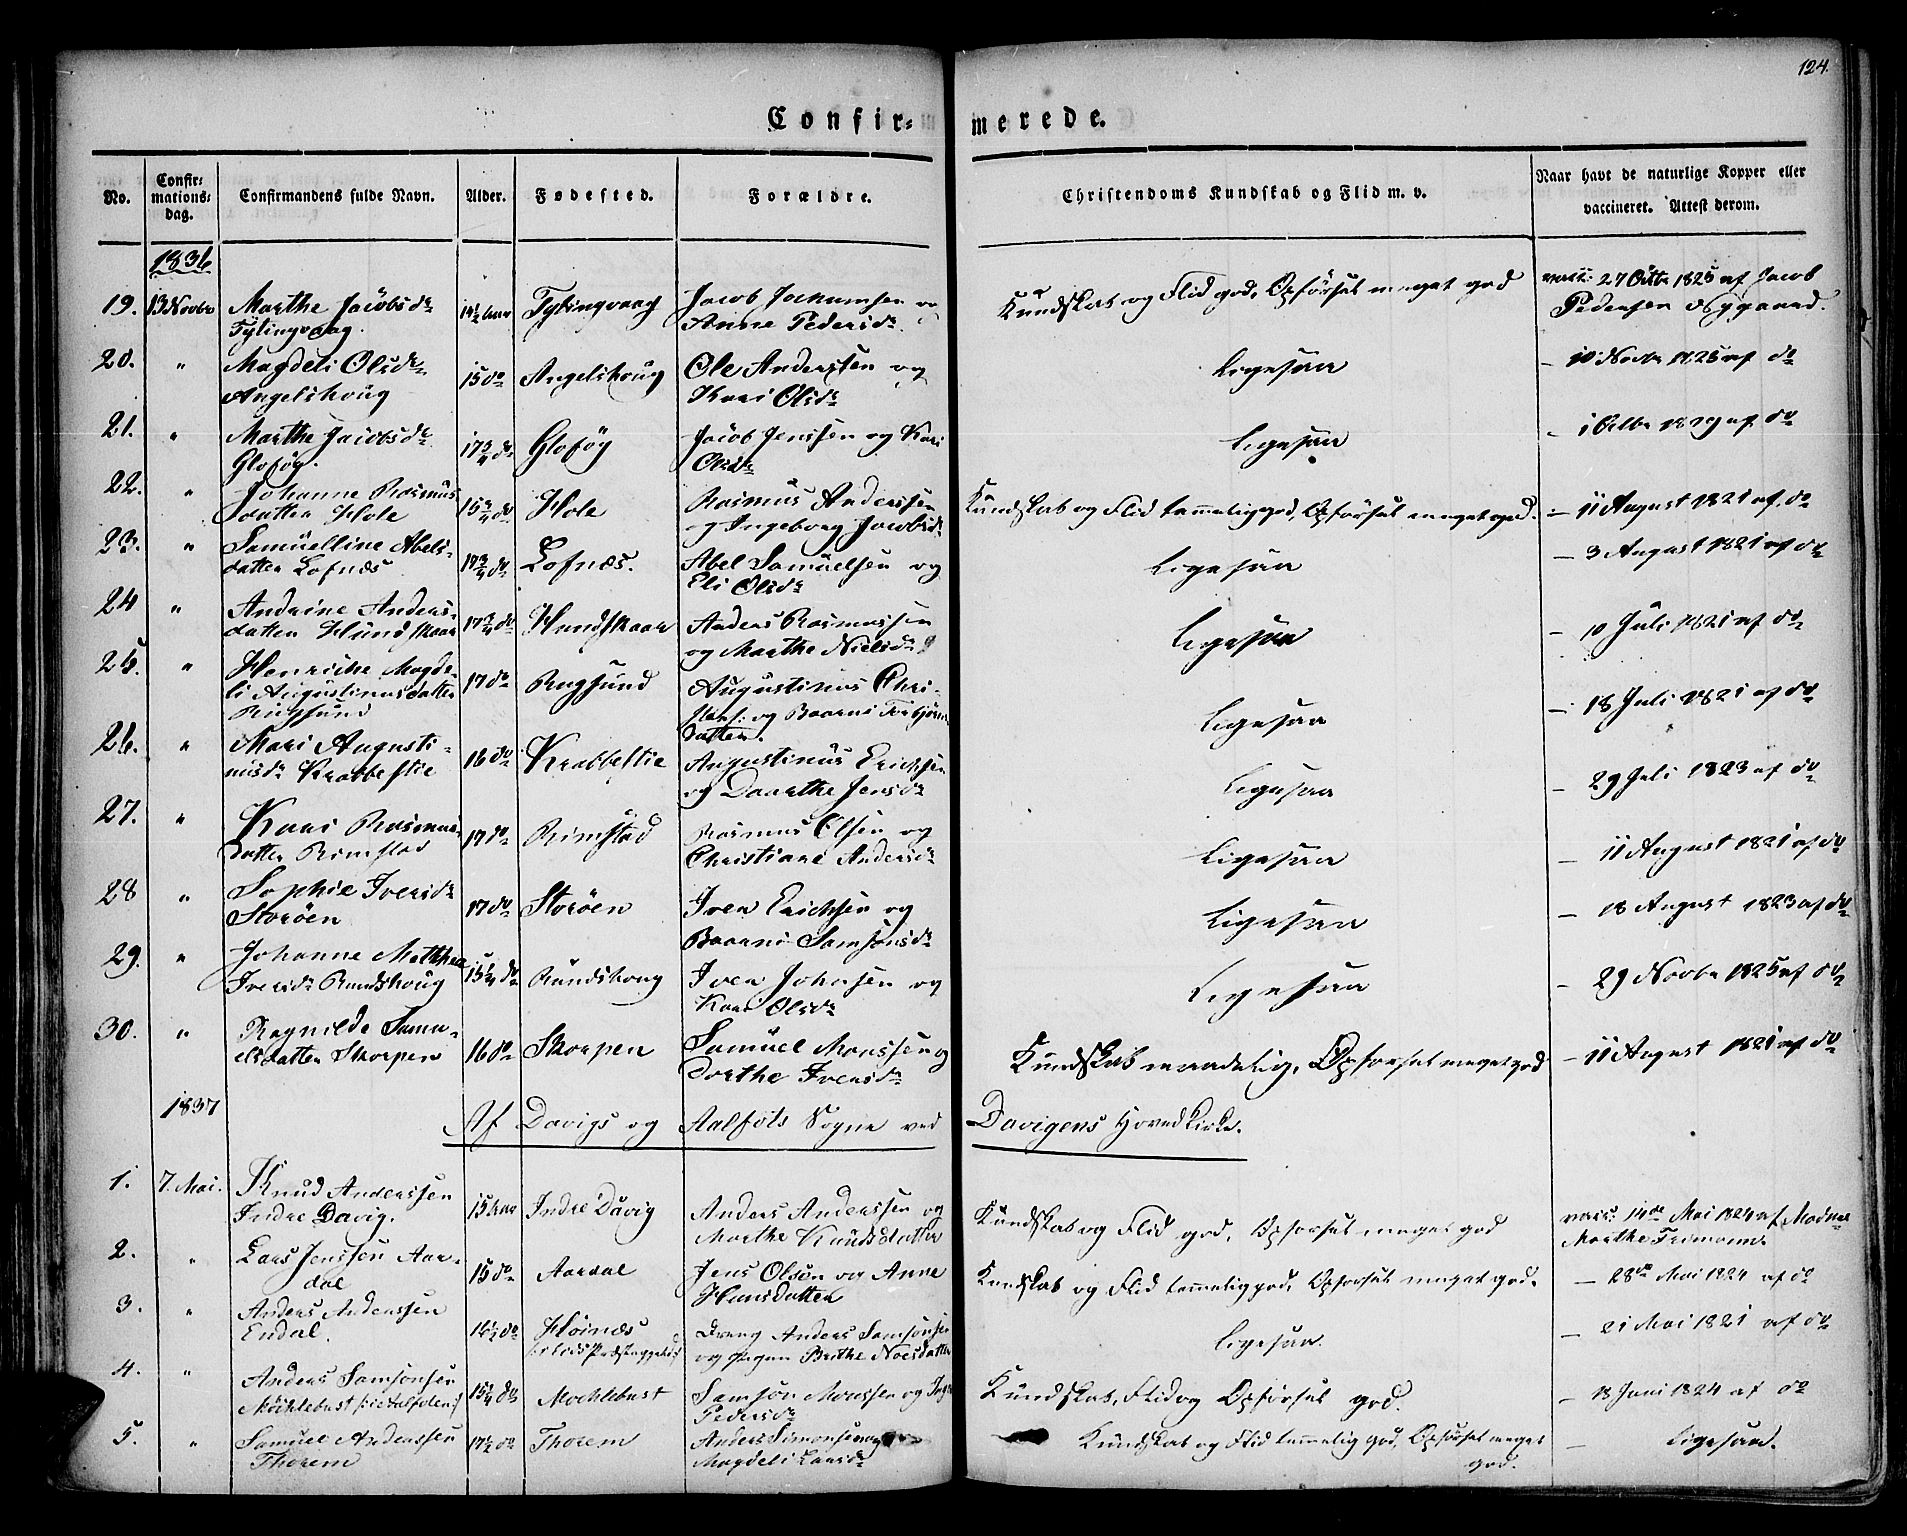 124.
Confir= merede.
No. Confir=mations=dag. Confirmandens fulde Navn. Alder. Fødested. Forældre. Christendoms Kundskab og Flid m. v. Naar havt de naturlige Kopper eller vaccineret. Attest derom.
1836
19. 13 Novbr Marthe Jacobsdr Tytingvaag Tytingvaag Jacob Jochumsen og Anne Pedersdr. Kundskab og Flid god, Opførsel meget god vacc: 27 Octbr 1825 af Jacob Pedersen Nygaard.
20. " Magdeli Olsdr Angelshoug 15 do Angelshoug Ole Anderssen og Kari Olsdr Ligesaa — 10 Novbr 1825 af do
21. " Marthe Jacobsdr Gloføg. 17 3/4 do Gloføg Jacob Jenssen og Kari Olsdr Ligesaa — 1819 af do
22. " Johanne Rasmusdatter Hole 15 3/4 do Hole Rasmus Anderssen og Ingeborg Jacobsdr Kundskab og Flid temmelig god, Opførsel meget god. — 11 August 1821 af do
23. " Samuelline Abels-datter Lofnæs 17 3/4 do Lofnæs. Abel Samuelsen og Eli Olsdr Ligesaa — 3 August 1821 af do
24 " Andrine Anders-datter Hundskaar 17 3/4 do Hundskaar Anders Rasmussen og Marthe Nielsdr Ligesaa — 10 Juli 1821 af do
25. " Henriche Magde-li Augustinusdatter Rugsund 17 do Rugsund Augustinus Chri-stens: og Baarni Torbjørns datter. Ligesaa — 18 Juli 1821 af do
26. " Mari Augusti-nusdr Krabbestie 16 do Krabbestie Augustinus Erichsen og Daarthe Jensdr Ligesaa — 29 Juli 1823 af do
27. " Kari Rasmus-datter Rimstad 17 do Rimstad Rasmus Olsen og Christiane Andersdr Ligesaa — 11 August 1821 af do
28 " Sophie Iversdr Storøen 17 do Storøen Iver Erichsen og Baarni Samsonsdr Ligesaa — 18 August 1823 af do
29. " Johanne Matthea Iversdr Rundshoug 15 1/4 do Rundshoug Iver Johnsen og Kari Olsdr Ligesaa — 29 Novbr 1825 af do
30. " Ragnilde Samu-elsdatter Skorpen 16 do Skorpen Samuel Monssen og Dorthe Iversdr Kundskab maadelig, Opførsel meget god — 11 August 1821 af do
1837 Af Davigs og Aalfots Sogne ved Davigens Hovedkirke.
1. 7. Mai. Knud Anderssen Indre Davig. 15 Aar Indre Davig Anders Anderssen og Marthe Knudsdatter Kundskab og Flid god, Opførsel meget god vacc: 14de Mai 1824 af Madme Marthe Friemann
2. " Lars Jenssen Aar-dal 15 do Aardal Jens Olsen og Anne Hansdatter Kundskab og Flid temmelig god, Opførsel meget god. — 28de Mai 1824 af do
3. " Anders Anderssen Endal. 16 1/2 do Høinæs Dreng Anders Samsonsen og Pigen Brithe Ligesaa. — 21 Mai 1821 af do
4. " Anders Samsonsen Møchlebust 15 1/4 do Mochlebust Samson Monssen og Inger Pedersdr Kundskab, Flid og Opførsel god. — 13 Juni 1824 af do
5. " Samuel Anderssen Thorem 17 1/2 do Thorem Anders Simonsen og Magdeli Larsdr Kundskab og Flid temmelig god, Opførsel meget god. — Ligesaa.